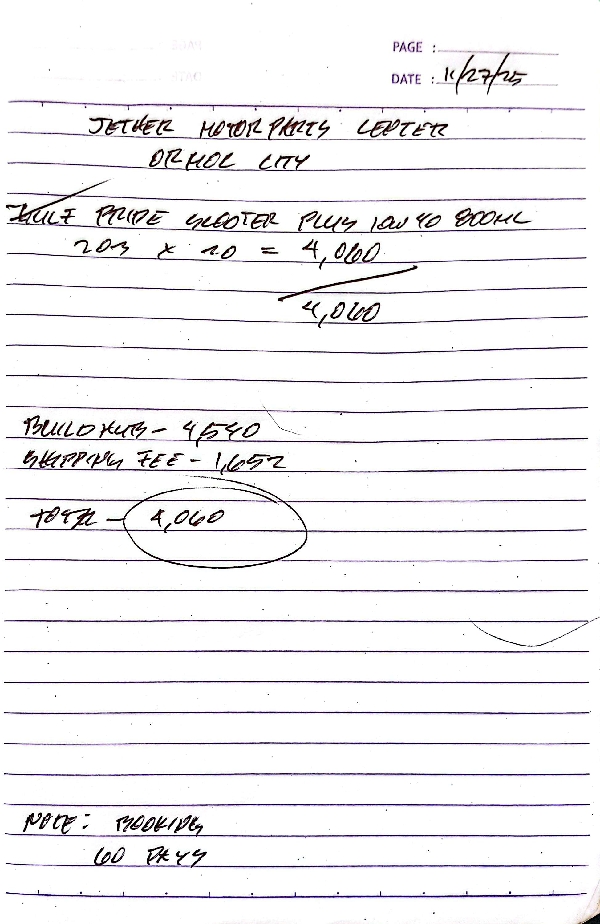 PAGE :
DATE : 11/27/25
JETHER MOTORPARTS CENTER
ORMOC CITY
GULF PRIDE SCOOTER PLUS 10W40 800ML
203 x 20 = 4,060
4,060
BUILDHUB - 4,540
SHIPPING FEE - 1,652
TOTAL - 4,060
NOTE: BOOKING
60 DAYS